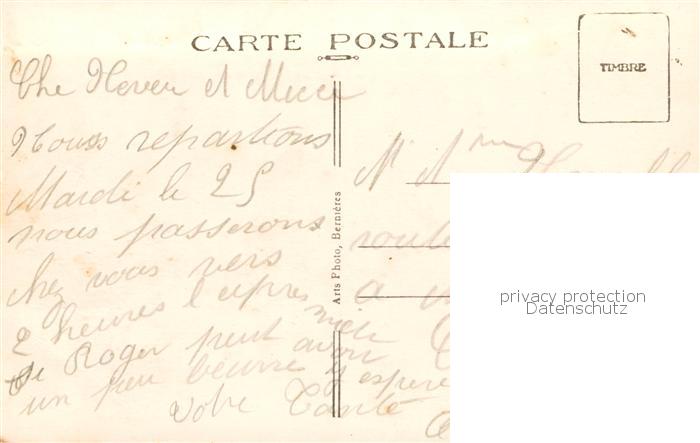 CARTE POSTALE
TIMBRE
Che Neveu et Niece
Nouss repartions
Mardi le 25
nous passerons
chez vous vers
2 heures l apres midi
si Roger peut avoir
un peu beurre j espere
votre Tante
Arts Photo, Bernières
Mr Mme
route
a
privacy protection
Datenschutz